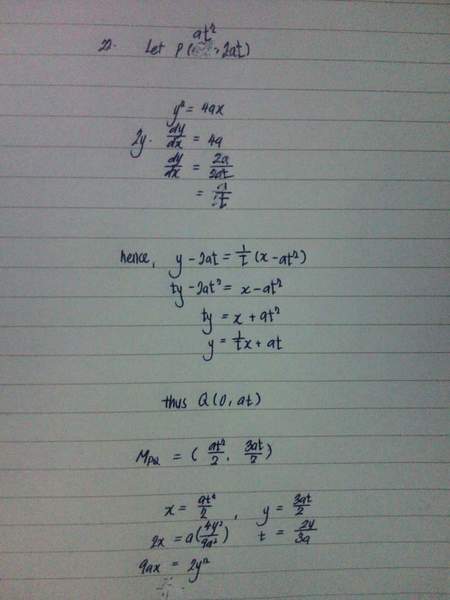 22. Let P(at², 2at)
y² = 4ax
2y · dy/dx = 4a
dy/dx = 2a/2at
= 1/t
hence, y - 2at = 1/t (x - at²)
ty - 2at² = x - at²
ty = x + at²
y = 1/t x + at
thus Q(0, at)
M_PQ = ( at²/2 , 3at/2 )
x = at²/2 , y = 3at/2
2x = a(4y²/9a²) t = 2y/3a
9ax = 2y²